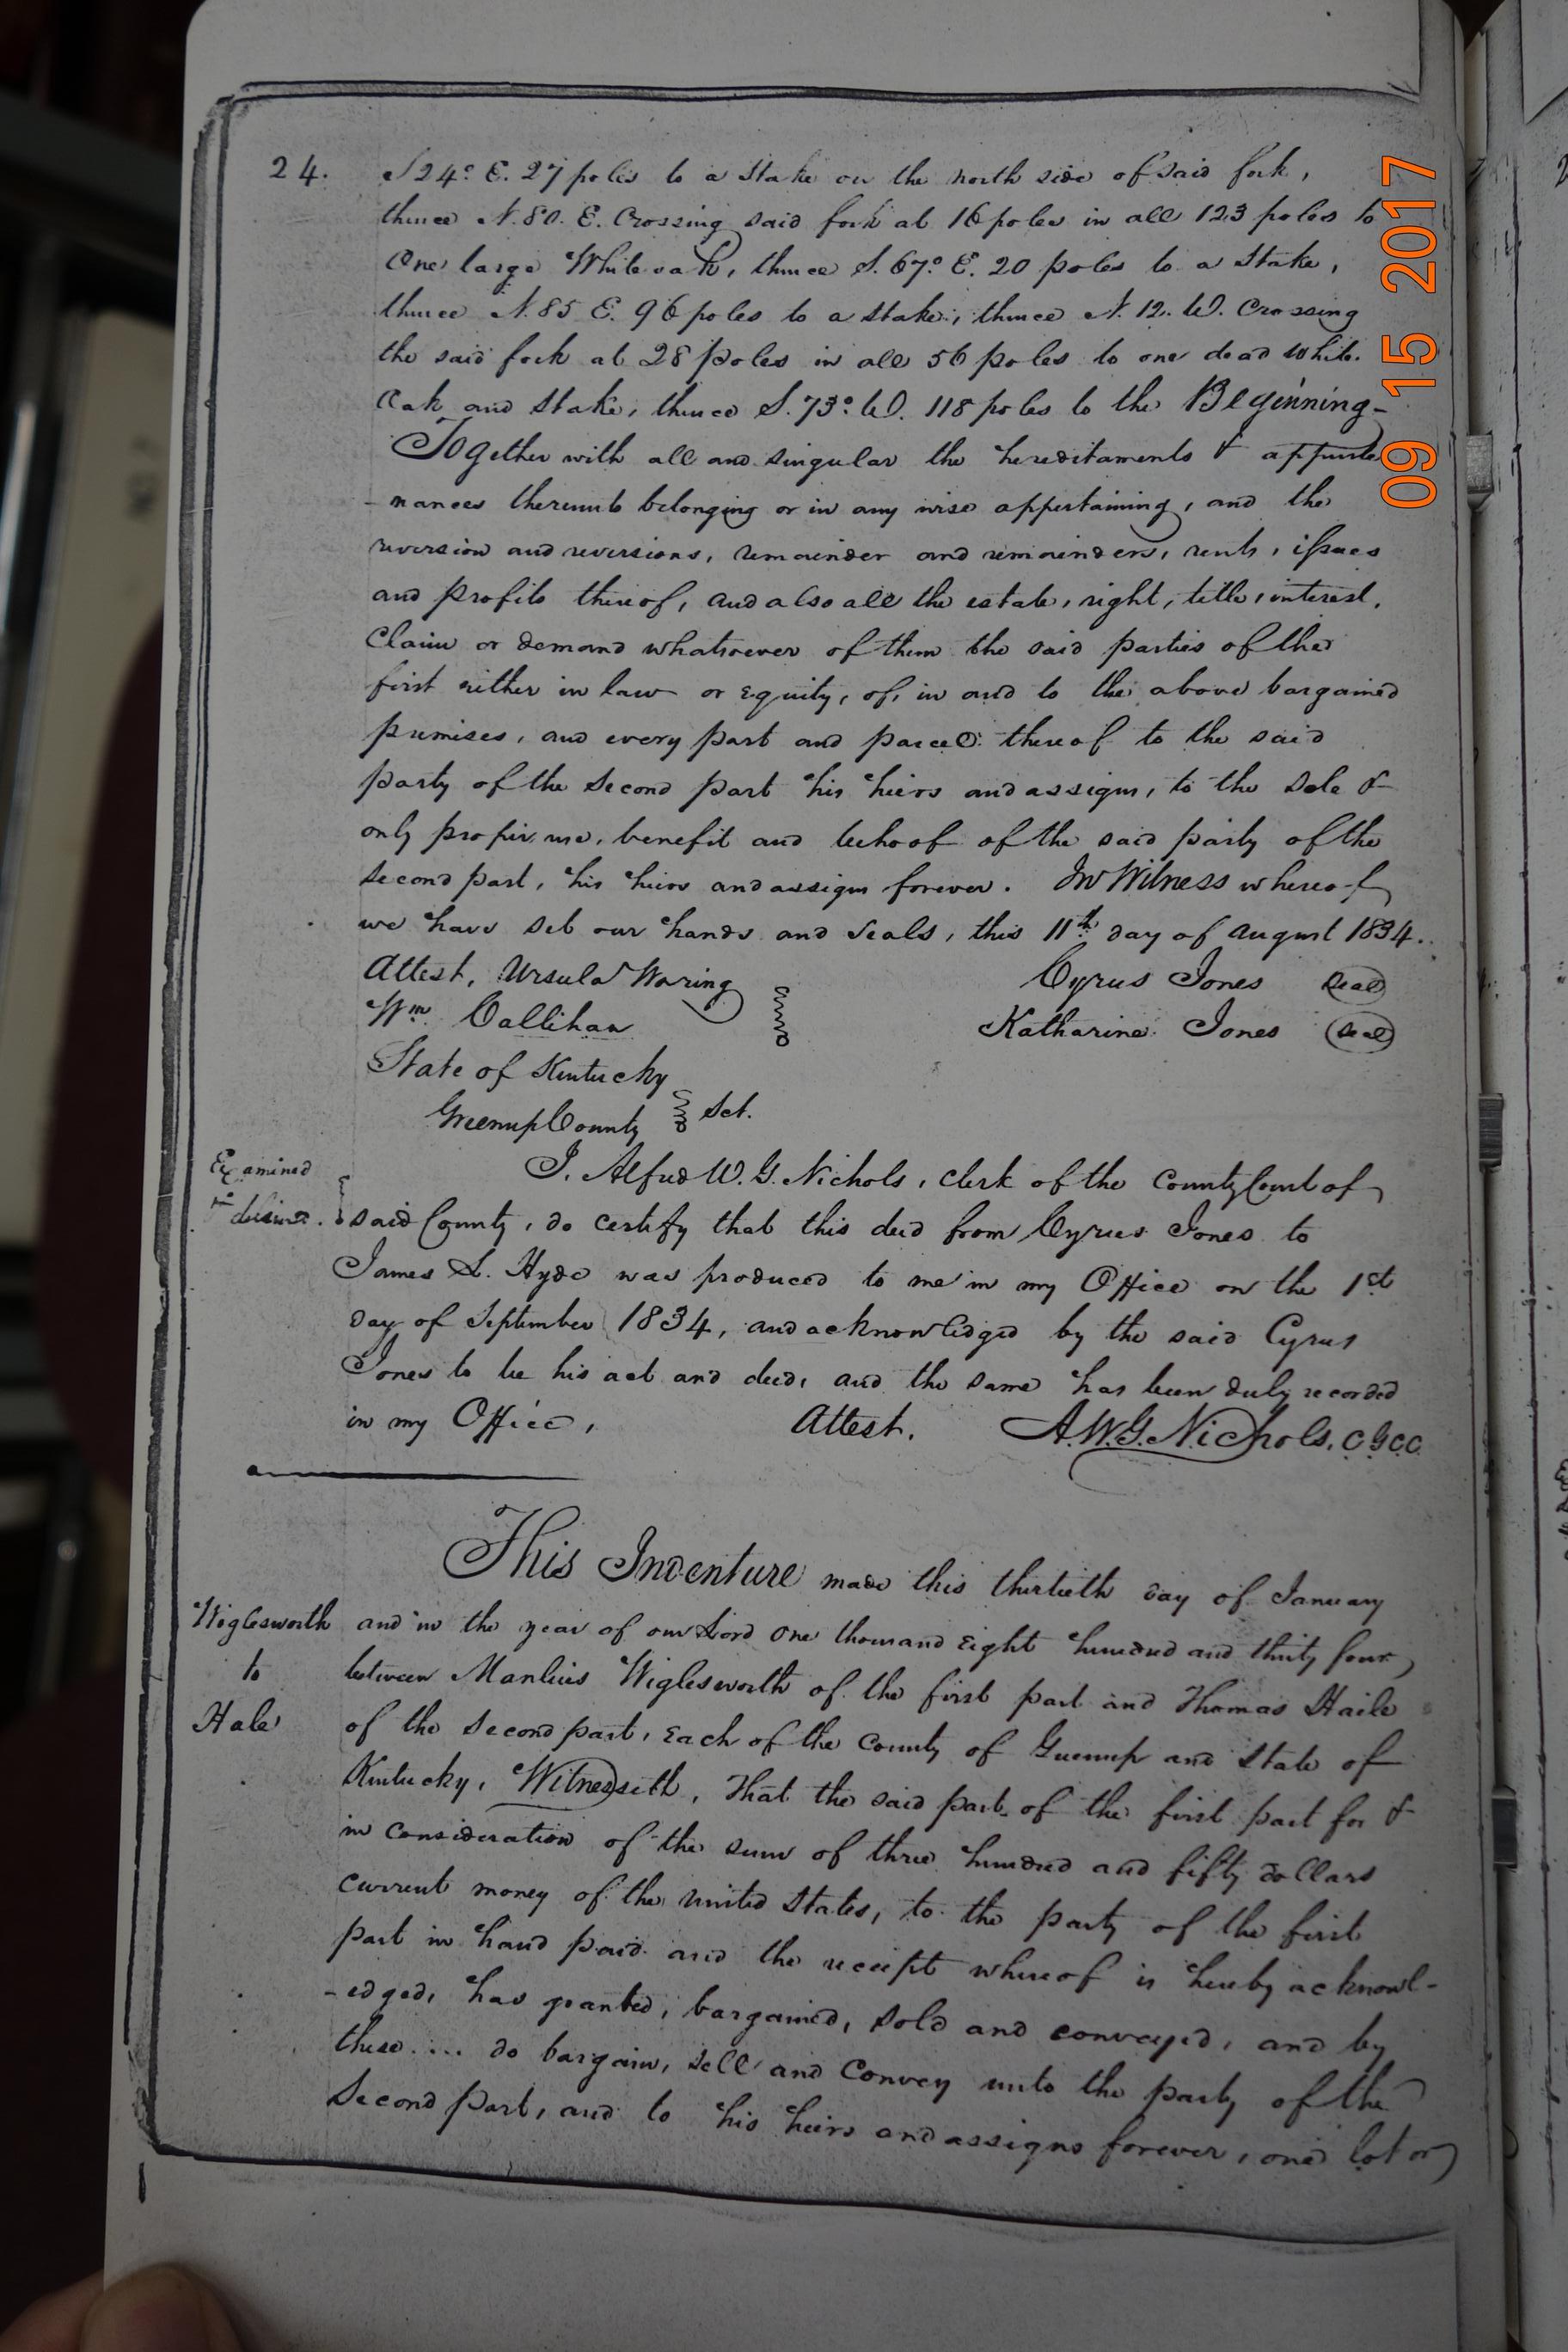 24.
S 24° E. 27 poles to a Stake on the north side of said fork,
thence N. 80. E. Crossing said fork at 16 poles in all 123 poles to
One large White oak, thence S. 67° E. 20 poles to a Stake,
thence N. 85 E. 96 poles to a stake, thence N. 12. W. Crossing
the said fork at 28 poles in all 56 poles to one dead white.
Oak and Stake, thence S. 73° W. 118 poles to the Beginning-
Together with all and singular the hereditaments & appurte
-nances thereunto belonging or in any wise appertaining, and the
reversion and reversions, remainder and remainders, rents, issues
and profits thereof, and also all the estate, right, title, interest,
Claim or demand whatsoever of them the said parties of the
first either in law or equity, of, in and to the above bargained
premises, and every part and parcel thereof to the said
party of the Second part his heirs and assigns, to the Sole &
only proper use, benefit and behoof of the said party of the
Second part, his heirs and assigns forever. In Witness whereof
we have set our hands and seals, this 11th day of August 1834.
Attest, Ursula Waring
Cyrus Jones Seal
Wm Callihan
Katharine Jones Seal
State of Kentucky
Greenup County Sct.
Examined
&
I. Alfred W. G. Nichols, Clerk of the County Court of
said County, do certify that this deed from Cyrus Jones to
James S. Hyde was produced to me in my Office on the 1st
day of September 1834, and acknowledged by the said Cyrus
Jones to be his act and deed, and the same has been duly recorded
in my Office, Attest. A.W.G. Nichols, C.G.C.C.
This Indenture made this thirtieth day of January
Wiglesworth
to
Hale
and in the year of our Lord One thousand Eight hundred and thirty four,
between Manlius Wiglesworth of the first part and Thomas Haile
of the Second part, Each of the County of Greenup and State of
Kentucky, Witnesseth, That the said part of the first part for &
in consideration of the sum of three hundred and fifty dollars
current money of the united States, to the party of the first
part in hand paid and the receipt whereof is hereby acknowl-
-edged, has granted, bargained, sold and conveyed, and by
these .... do bargain, sell and Convey unto the party of the
Second part, and to his heirs and assigns forever, one lot or
09 15 2017